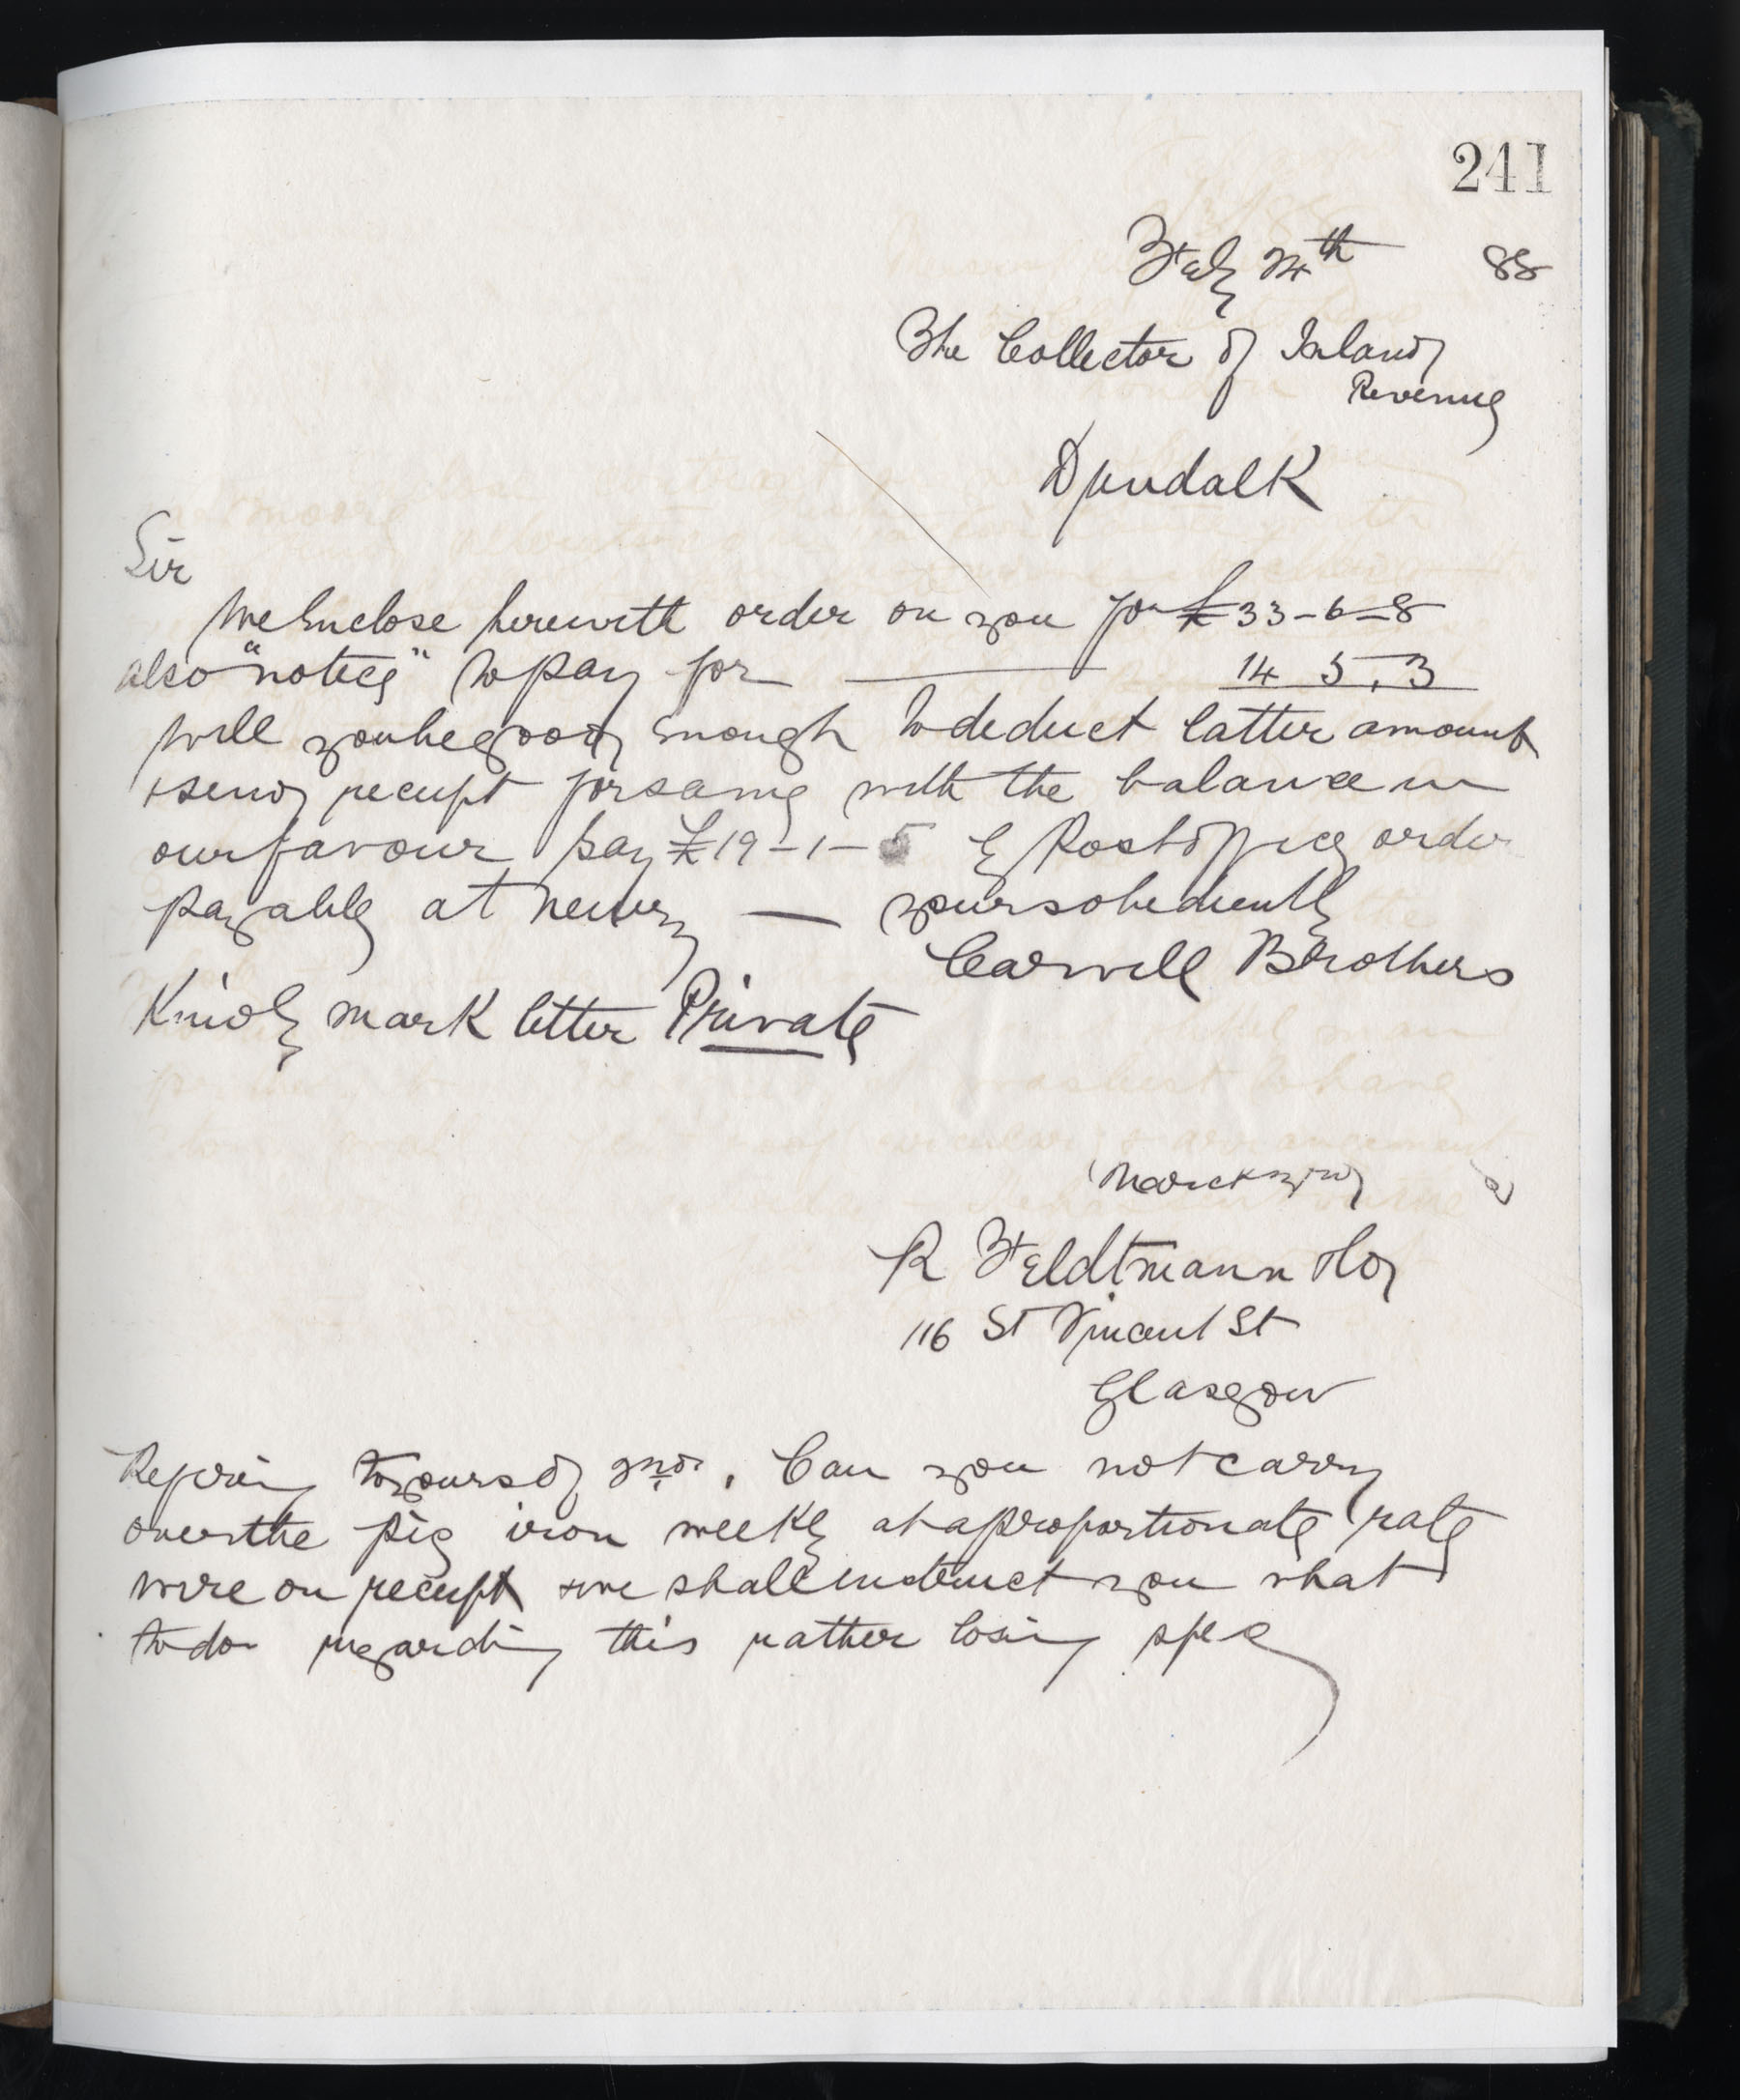 241
Feby 24th 88
The Collector of Inland
Revenue
Dundalk
Sir
We Enclose herewith order on you for £33-6-8
also "notice" to pay for —— 14 5.3
Will you be good enough to deduct latter amount
& send receipt for same with the balance in
our favour say £19-1-5 by Post office order
payable at Newry — yours obediently
Carvill Brothers
Kindly mark letter Private
March
R Feldtmann & Co
116 St Vincent St
Glasgow
Refering to yours of 2nd. Can you not carry
over the pig iron weekly at a proportionate rate
wire on receipt & we shall instruct you what
to do regarding this rather losing spec